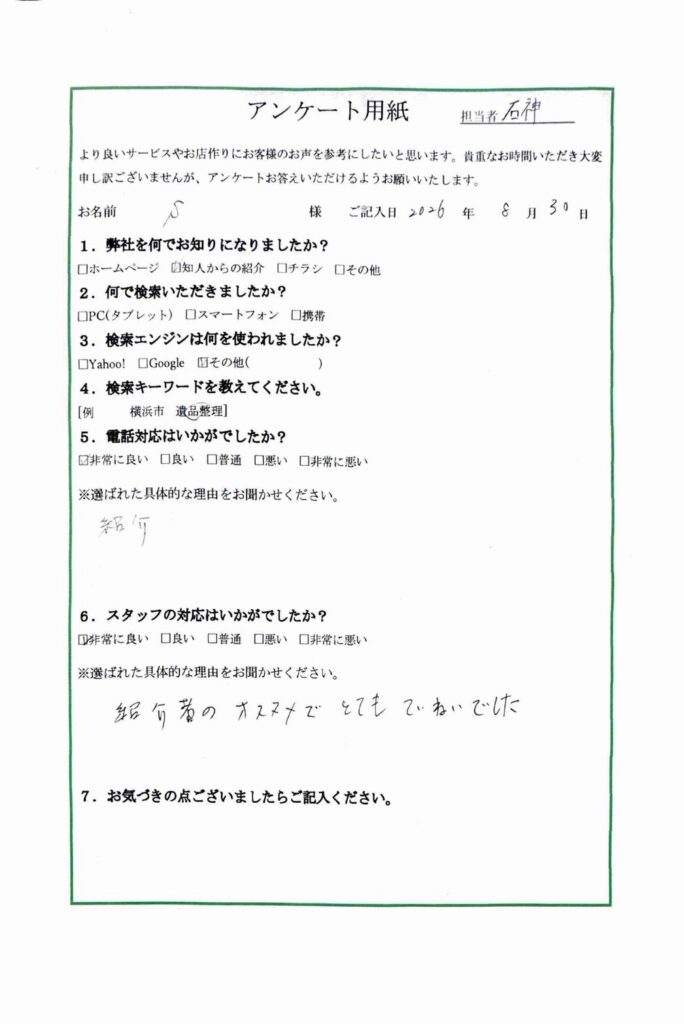 アンケート用紙 担当者 石神
より良いサービスやお店作りにお客様のお声を参考にしたいと思います。貴重なお時間いただき大変
申し訳ございませんが、アンケートお答えいただけるようお願いいたします。
お名前 S 様 ご記入日 2026 年 8 月 30 日
1．弊社を何でお知りになりましたか？
□ホームページ ☑知人からの紹介 □チラシ □その他
2．何で検索いただきましたか？
□PC(タブレット) □スマートフォン □携帯
3．検索エンジンは何を使われましたか？
□Yahoo! □Google ☑その他( )
4．検索キーワードを教えてください。
[例 横浜市 遺品整理]
5．電話対応はいかがでしたか？
☑非常に良い □良い □普通 □悪い □非常に悪い
※選ばれた具体的な理由をお聞かせください。
紹介
6．スタッフの対応はいかがでしたか？
☑非常に良い □良い □普通 □悪い □非常に悪い
※選ばれた具体的な理由をお聞かせください。
紹介者のオススメで とても ていねいでした
7．お気づきの点ございましたらご記入ください。